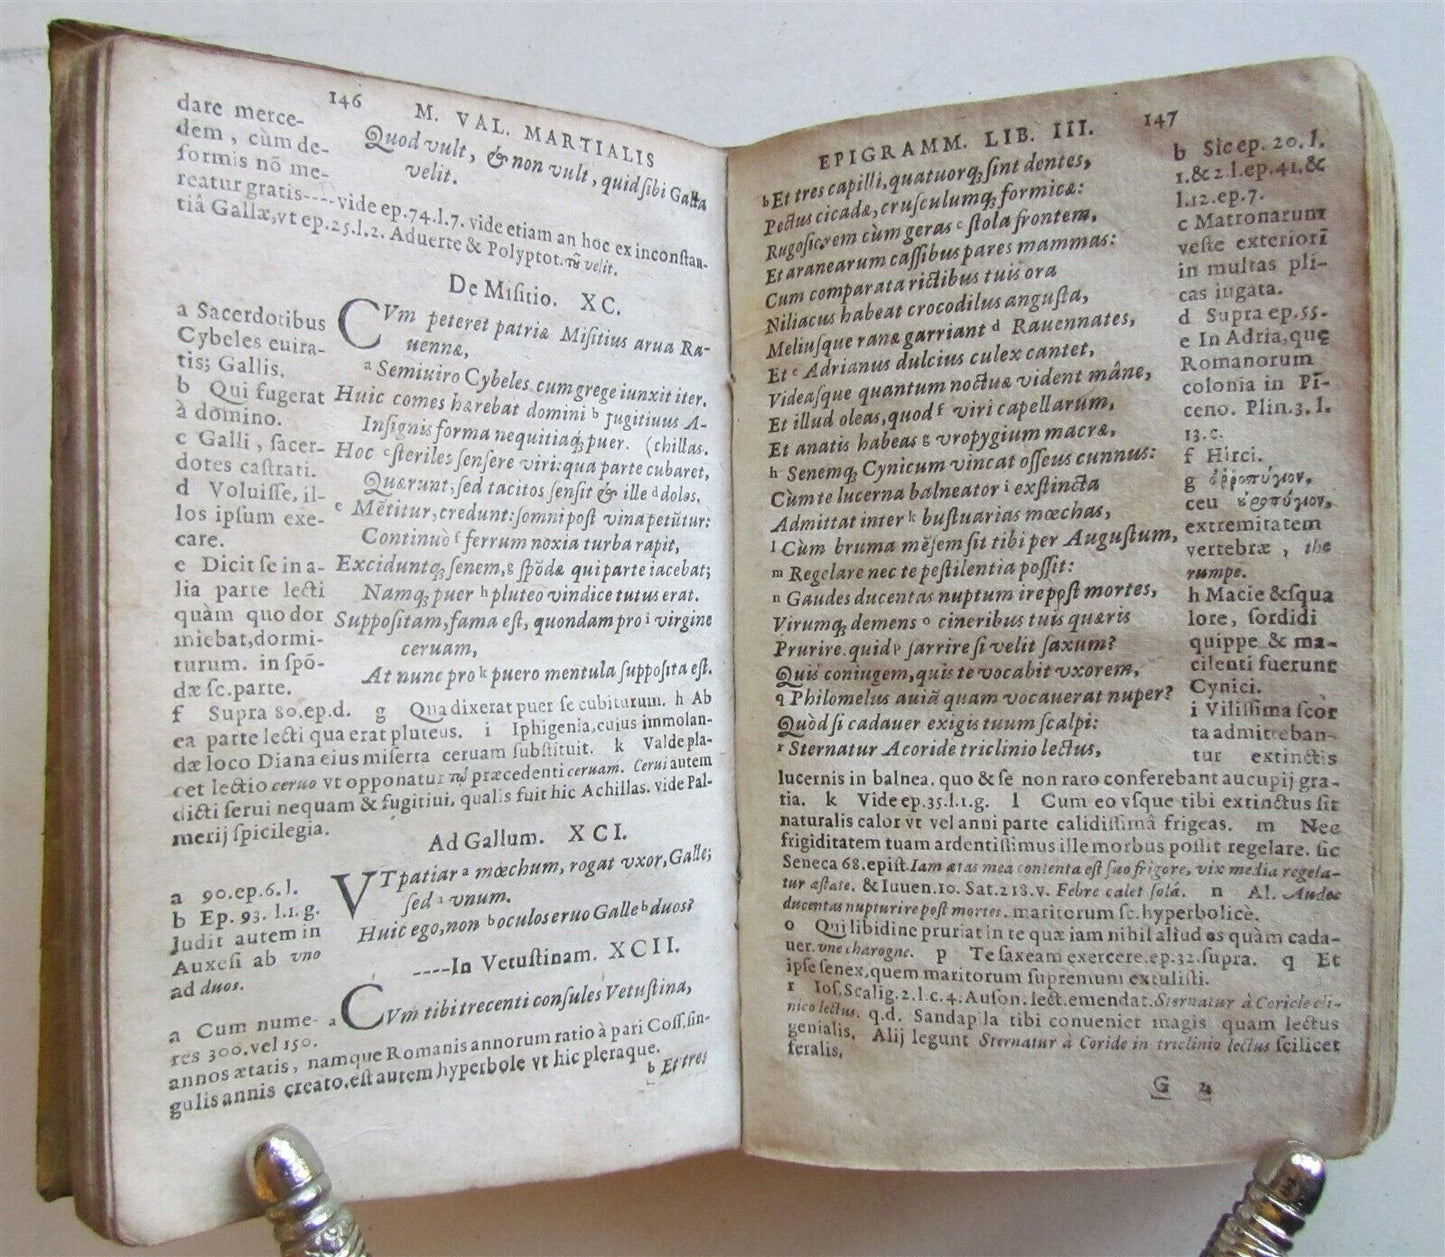 146 M. VAL. MARTIALIS
dare merce-
dem, cùm de-
formis nõ me-
reatur gratis----vide ep.74.l.7. vide etiam an hoc ex inconstan-
tiâ Gallæ, vt ep.25.l.2. Aduerte & Polyptot. velit.
Quod vult, & non vult, quid sibi Galla
velit.
De Misitio. XC.
CVm peteret patriæ Misitius arua Ra-
uennæ,
a Semiuiro Cybeles cum grege iunxit iter.
Huic comes hærebat domini b fugitiuus A-
Insignis forma nequitiaq; puer. (chillas.
Hoc c steriles sensere viri: qua parte cubaret,
Quærunt; sed tacitos sensit & ille d dolos.
e Mẽtitur, credunt: somni post vina petũtur:
Continuò f ferrum noxia turba rapit,
Exciduntq; senem, g spõdæ qui parte iacebat;
Namq; puer h pluteo vindice tutus erat.
Suppositam, fama est, quondam pro i virgine
ceruam,
At nunc pro k puero mentula supposita est.
a Sacerdotibus
Cybeles euira-
tis; Gallis.
b Qui fugerat
à domino.
c Galli, sacer-
dotes castrati.
d Voluisse, il-
los ipsum exe-
care.
e Dicit se in a-
lia parte lecti
quàm quo dor
miebat, dormi-
turum. in spõ-
dæ sc. parte.
f Supra 80.ep.d. g Qua dixerat puer se cubiturum. h Ab
ea parte lecti qua erat pluteus. i Iphigenia, cuius immolan-
dæ loco Diana eius miserta ceruam substituit. k Valde pla-
cet lectio ceruo vt opponatur τῷ præcedenti ceruam. Cerui autem
dicti serui nequam & fugitiui, qualis fuit hic Achillas. vide Pal-
merij spicilegia.
Ad Gallum. XCI.
VT patiar a mœchum, rogat vxor, Galle;
sed a vnum.
Huic ego, non b oculos eruo Galle b duos?
a 90.ep.6.l.
b Ep. 93. l.1.g.
Judit autem in
Auxesi ab uno
ad duos.
----In Vetustinam. XCII.
a CVm tibi trecenti consules Vetustina,
a Cum nume-
res 300.vel 150.
annos ætatis, namque Romanis annorum ratio à pari Coss. sin-
gulis annis creato, est autem hyperbole vt hic pleraque.
b Et tres
EPIGRAMM. LIB. III. 147
b Et tres capilli, quatuorq; sint dentes,
Pectus cicadæ, crusculumq; formicæ:
Rugosiorem cùm geras c stola frontem,
Et aranearum cassibus pares mammas:
Cum comparata rictibus tuis ora
Niliacus habeat crocodilus angusta,
Meliusque ranæ garriant d Rauennates,
Et e Adrianus dulcius culex cantet,
Videasque quantum noctuæ vident mâne,
Et illud oleas, quod f viri capellarum,
Et anatis habeas g vropygium macræ,
h Senemq; Cynicum vincat osseus cunnus:
Cùm te lucerna balneator i exstincta
Admittat inter k bustuarias mœchas,
l Cùm bruma mẽsem sit tibi per Augustum,
m Regelare nec te pestilentia possit:
n Gaudes ducentas nuptum ire post mortes,
Virumq; demens o cineribus tuis quæris
Prurire. quid p sarrire si velit saxum?
Quis coniugem, quis te vocabit vxorem,
q Philomelus auiã quam vocauerat nuper?
Quòd si cadauer exigis tuum scalpi:
r Sternatur Acoride triclinio lectus,
b Sic ep. 20. l.
1.& 2.l.ep.41.&
l.12.ep.7.
c Matronarum
veste exteriorĩ
in multas pli-
cas iugata.
d Supra ep.55.
e In Adria, quę
Romanorum
colonia in Pĩ-
ceno. Plin.3. l.
13.c.
f Hirci.
g ὀρροπύγιον,
ceu
extremitatem
vertebræ, the
rumpe.
h Macie & squa
lore, sordidi
quippe & ma-
cilenti fuerunt
Cynici.
i Vilissima scor
ta admitteban-
tur extinctis
lucernis in balnea. quo & se non raro conferebant aucupij gra-
tia. k Vide ep.35.l.1.g. l Cum eo vsque tibi extinctus sit
naturalis calor vt vel anni parte calidissimâ frigeas. m Nec
frigiditatem tuam ardentissimus ille morbus possit regelare. sic
Seneca 68.epist. Iam ætas mea contenta est suo frigore, vix media regela-
tur æstate. & Iuuen.10. Sat.218.v. Febre calet solâ. n Al. Audes
ducentas nupturire post mortes. maritorum sc. hyperbolicè.
o Qui libidine pruriat in te quæ iam nihil aliud es quàm cada-
uer. vne charogne. p Te saxeam exercere. ep.32.supra. q Et
ipse senex, quem maritorum supremum extulisti.
r Ios. Scalig.2.l.c.4. Auson. lect. emendat. Sternatur à Coricle cli-
nico lectus. q.d. Sandapila tibi conueniet magis quam lectus
genialis, Alij legunt Sternatur à Coride in triclinio lectus scilicet
feralis,
G 4